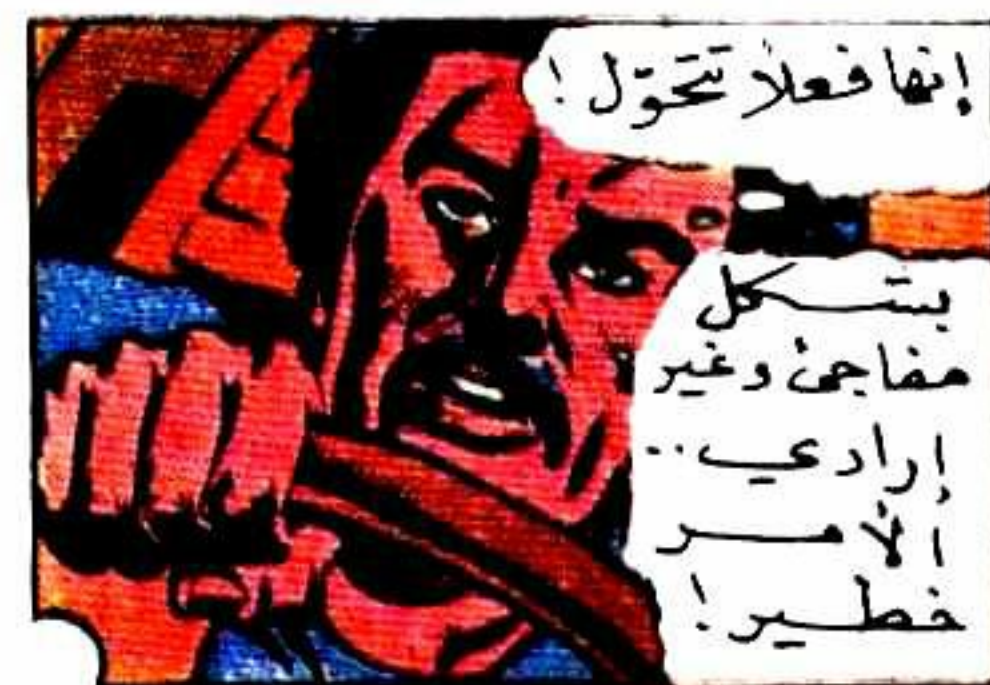 إنها فعلاً تتحوّل!
بشكل
مفاجئ وغير
إرادي..
الأمر
خطير!